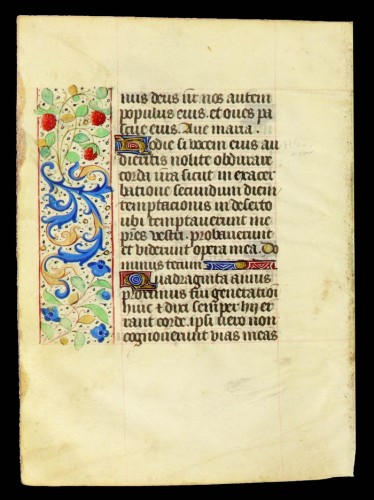 nus deus sit nos autem
populus eius. et oues pa
scue eius. Aue maria.
Hodie si vocem eius au
dieritis nolite obdurare
corda vr̃a sicut in exacer
batione secundum diem
temptationis in deserto
ubi temptauerunt me
pr̃es vestri. probauerunt
et viderunt opera mea. Do
minus tecum.
Quadraginta annis
proximus fui generationi
huic et dixi semper hij er
rant corde. ipsi uero non
cognouerunt vias meas